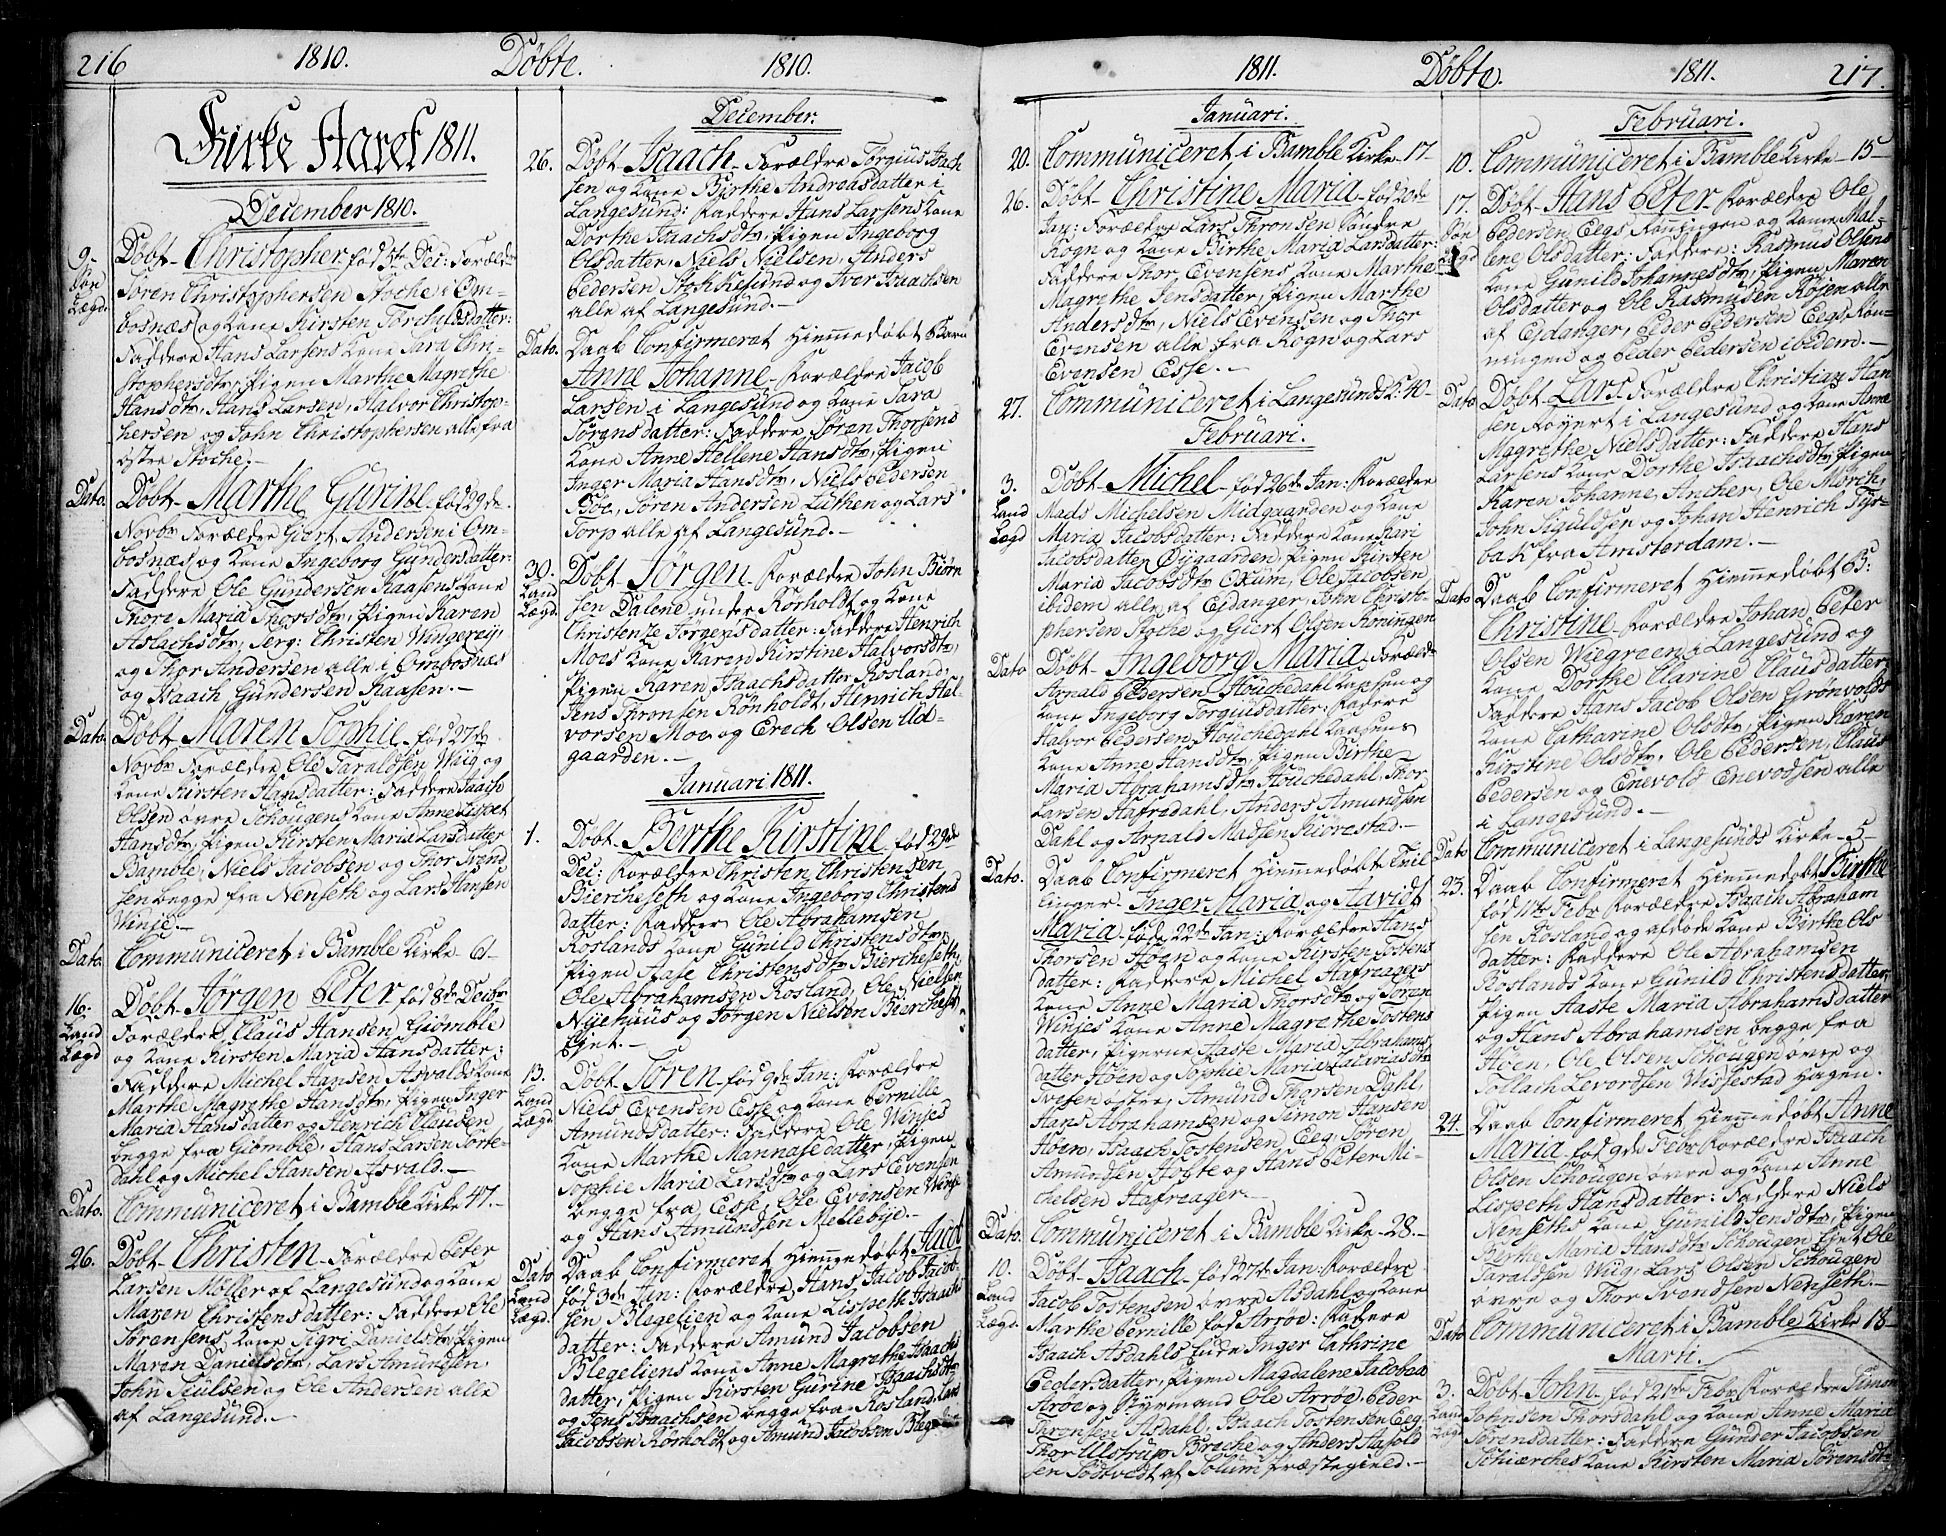 216 1810. Döbte. 1810.
Kirke Aaret 1811.
December 1810.
9. Döbt Christopher född 5te Dec: Foræld:
Söe Lægd. Sören Christophersen Stocke i Om-
bosnæs og Kone Kirsten Torchildsdatter:
Faddere Hans Larsens Kone Sara Chri-
stophersdtr, Pigen Marthe Magrethe
Hansdtr, Hans Larsen, Halvor Christop-
hersen og John Christophersen alle fra
östre Stocke.
Dato. Döbt Marthe Gurine född 29de
Novbr Forældre Giert Andersen i Om-
bosnæs og Kone Ingeborg Gundersdatter:
Faddere Ole Gundersen Kaasens Kone
Thore Maria Thorsdtr, Pigen Karen
Aslachsdtr, Serg: Christen Wingereij,
og Thor Andersen alle i Ombosnæs
og Isaach Gundersen Kaasen.
Dato. Döbt Maren Sophie född 27de
Novbr Forældre Ole Taraldsen Wiig og
Kone Kirsten Hansdatter: Faddere Isaach
Olsen övre Schougens Kone Anne Lispet
Hansdtr, Pigen Kirsten Maria Larsdatter
Bamble, Niels Jacobsen og Thor Svend
sen begge fra Nenseth og Lars Hansen
Winje.
Dato. Communiceret i Bamble Kirke 61
16. Döbt Jörgen Peter född 8de Decbr
Land Lægd Forældre Claus Hansen Giömble
og Kone Kirsten Maria Hansdatter:
Faddere Michel Hansen Asvalds Kone
Marthe Magrethe Hansdtr, Pigen Inger
Maria Hansdatter og Henrich Clausen
begge fra Giömble, Hans Larsen Torte-
Dahl og Michel Hansen Asvald.
Dato. Communiceret i Bamble Kirke 47.
26. Döbt Christen Forældre Peter
Larsen Möller af Langesund og Kone
Maren Christensdatter: Faddere Ole
Törensens Kone Sigri Danielsdtr, Pigen
Maren Danielsdtr, Lars Amundsen
John Siulsen og Ole Andersen alle
af Langesund.
December.
26. Döbt Isaach Forældre Torgius Isach
sen og Kone Birthe Andreasdatter i
Langesund: Faddere Hans Larsens Kone
Dorthe Isaachsdtr, Pigen Ingeborg
Olsdatter, Niels Nielsen, Anders
Pedersen Stokkesund og Iver Isaachsen
alle af Langesund.
Dato. Daab Confirmeret Hiemmedöbt Barn
Anne Johanne Forældre Jacob
Larsen i Langesund og Kone Sara
Sörensdatter: Faddere Sören Thorsens
Kone Anne Hellene Hansdtr, Pigen
Inger Maria Hansdtr, Niels Pedersen
Böe, Sören Andersen Luthen og Lars
Torp alle af Langesund.
30. Döbt Jörgen Forældre John Biörn
Land Lægd. sen Dalene under Rörholdt og Kone
Christenze Jörgensdatter: Faddere Henrich
Moes Kone Karen Kirstine Halvorsdtr,
Pigen Karen Isaachsdatter Rosland,
Jens Thronsen Rönholdt, Henrich Hal-
vorsen Moe og Erech Olsen Ud-
gaarden.
Januari 1811.
1. Döbt Berthe Kirstine född 29de
Dec: Forældre Christen Christensen
Biercheseth og Kone Ingeborg Christens
datter: Faddere Ole Abrahamsen
Roslands Kone Gunild Christensdtr,
Pigen Aase Christensdtr Biercheseth,
Ole Abrahamsen Rosland, Ole Nielsen
Nyehuus og Jörgen Nielsen Bierchseth
Eyet.
13. Döbt Sören född 9de Jan: Forældre
Land Lægd. Niels Evensen Esse og Kone Pernille
Amundsdatter: Faddere Ole Winjes
Kone Marthe Mannasedatter, Pigen
Sophie Maria Larsdtr og Lars Evensen
begge fra Esse, Ole Evensen Winje
og Hans Amundsen Mellebÿe.
Dato Daab Confirmeret Hiemmedöbt Jacob
Land Lægd. född 3de Jan: Forældre Hans Jacob Jacob-
sen Blegelien og Kone Lispeth Isaachs
datter: Faddere Amund Jacobsen
Blegeliens Kone Anne Magrethe Isaachs
datter, Pigen Kirsten Gurine Isaachsdtr
og Jens Isaachsen begge fra Rosland, Lars
Jacobsen Rörholdt og Amund Jacobsen Blege
1811. Döbte. 1811. 217.
Januari.
20. Communiceret i Bamble Kirke 17
26. Döbt Christine Maria född 20de
Jan: Forældre Lars Thronsen Söndre
Rogn og Kone Birthe Maria Larsdatter:
Faddere Thor Evensens Kone Marthe
Magrethe Jensdatter, Pigen Marthe
Andersdtr, Niels Evensen og Thor
Evensen alle fra Rogn og Lars
Evensen Esse.
27. Communiceret i Langesunds K: 40
Februari.
3. Döbt Michel född 26de Jan: Forældre
Land Lægd Mads Michelsen Midgaarden og Kone
Maria Jacobsdatter: Faddere Kone Kari
Jacobsdatter Öygaarden, Pigen Kirsten
Maria Jacobsdtr Oxum, Ole Jacobsen
ibidem alle af Ejdanger, John Christo-
phersen Stocke og Giert Olsen Roningen
Dato Döbt Ingeborg Maria Foræld-
Arnald Pedersen Houchedahl Kaasen og
Kone Ingeborg Torgiusdatter: Faddere
Halvor Pedersen Houchedahl Kaasens
Kone Anne Hansdtr, Pigen Birthe
Maria Abrahamsdtr Houchedahl, Thor
Larsen Hafredahl, Anders Amundsen
Dahl og Arnald Madsen Kiörestad.
Dato. Daab Confirmeret Hiemmedöbte Tvil
linger Inger Maria og Aavidt
Maria födt 22de Jan: Forældre Hans
Thorsen Höen og Kone Kirsten Tostens
datter: Faddere Michel Hafreagers
Kone Anne Maria Thorsdtr og Sören
Winjes Kone Anne Magrethe Tostens
datter, Pigerne Aaste Maria Abrahams
datter Höen og Sophie Maria Zachariasdtr
Tveten östre, Amund Thorsen Dahl,
Hans Abrahamsen og Simon Hansen
Höen, Isaach Tostensen Eeg, Sören
Amundsen Holte og Hans Peter Mi-
chelsen Hafreager.
Dato. Communiceret i Bamble Kirke 28.
10. Döbt Isaach född 27de Jan: Forældre
Land Lægd. Jacob Tostensen övre Asdahl og Kone
Marthe Pernille född Arröe: Faddere
Isaach Asdahls Enke Inger Cathrine
Pedersdatter, Pigen Magdalene Jacobea
Aröe og Styrmand Ole Arröe, Peder
Thronsen Asdahl, Isaach Tostensen Eeg
Thor Ulstrup Broche og Anders Aasold
sen Södtvedt af Solum Præstegield.
Februari.
10. Communiceret i Bamble Kirke 15
17. Döbt Hans Peter Forældre Ole
Söe Lægd Pedersen Eegs Ronningen og Kone Mal-
lene Olsdatter: Faddere: Rasmus Olsens
Kone Gunild Johannesdtr, Pigen Maren
Olsdatter og Ole Rasmusen Rösen alle
af Ejdanger, Peder Pedersen Eegs Ron-
ningen og Peder Pedersen ibidem.
Dato Döbt Lars Forældre Christian Han
sen Röyert i Langesund og Kone Anne
Magrethe Nielsdatter: Faddere Hans
Larsens Kone Dorthe Isaachsdtr, Pigen
Karen Johanne Ancher, Ole Mörch,
John Siguldsen og Johan Henrich Tys-
bak fra Amsterdam.
Dato Daab Confirmeret Hiemmedöbt B:
Christine Forældre Johan Peter
Olsen Wiegreen i Langesund og
Kone Dorthe Clarine Clausdatter:
Faddere Hans Jacob Olsen Grönvolds
Kone Catharine Olsdtr, Pigen Karen
Kirstine Olsdtr, Ole Pedersen, Claus
Pedersen og Enevold Enevodsen alle
i Langesund.
Dato Communiceret i Langesunds Kirke 5
23. Daab Confirmeret Hiemmedöbt Birthe
född 11te Febr Forældre Isaach Abraham
sen Rosland og afdöde Kone Birthe Ols
datter: Faddere Ole Abrahamsen
Roslands Kone Gunild Christensdatter,
Pigen Aaste Maria Abrahamsdatter
og Hans Abrahamsen begge fra
Höen, Ole Olsen Schougen övre og
Tollach Levordsen Wissestad Hagen.
24. Daab Confirmeret Hiemmedöbt Anne
Maria född 9de Febr Forældre Isaach
Olsen Schougen övre og Kone Anne
Lispeth Hansdatter: Faddere Niels
Nenseths Kone Gunild Jensdtr, Pigen
Berthe Maria Hansdtr Schougen Eyet, Ole
Taraldsen Wiig, Lars Olsen Schougen
övre og Thor Svendsen Nenseth.
Dato Communiceret i Bamble Kirke 18
Marti.
3. Döbt John född 21de Febr Forældre Simon
Land Lægd Johnsen Thorsdahl og Kone Anne Maria
Sörensdatter: Faddere Gunder Jacobsen
Schierches Kone Kirsten Maria Sörensdtr